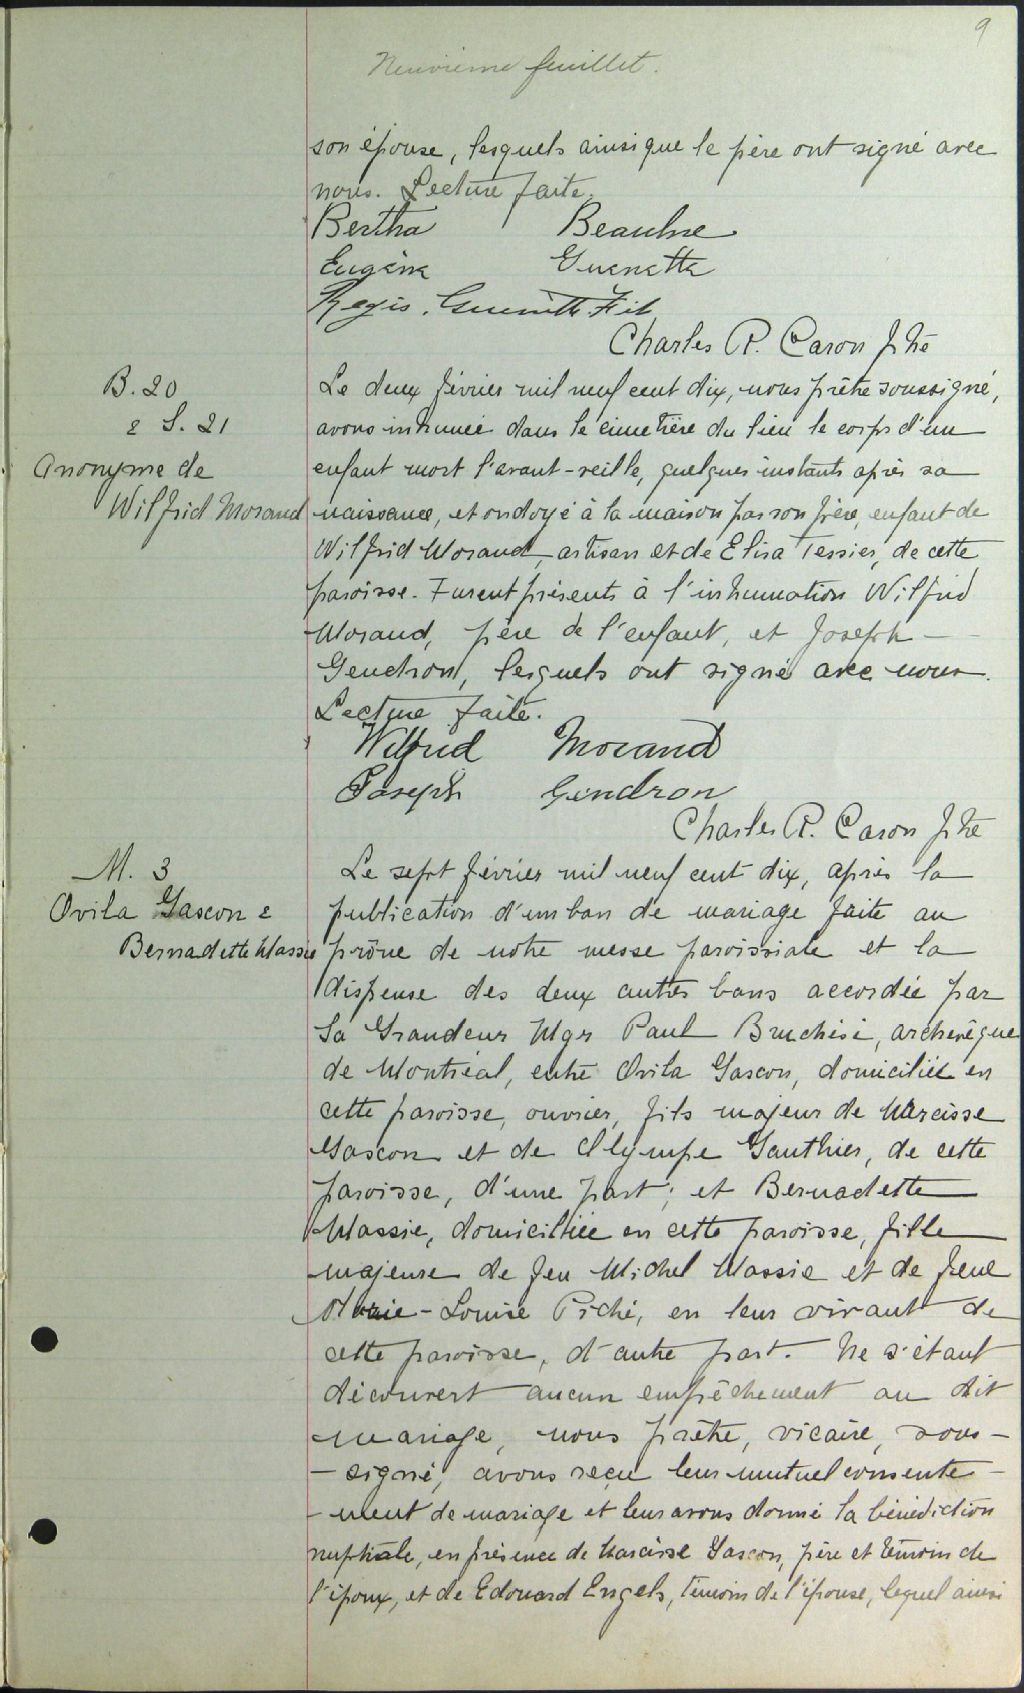 9
Neuvième feuillet.
son épouse, lesquels ainsi que le père ont signé avec
nous. Lecture faite.
Bertha Beaulne
Eugène Guenette
Regis. Guenette Fils
Charles R. Caron Ptre
B. 20
& S. 21
Anonyme de
Wilfrid Morand
Le deux février mil neuf cent dix, nous prêtre soussigné,
avons inhumé dans le cimetière du lieu le corps d'un
enfant mort l'avant-veille, quelques instants après sa
naissance, et ondoyé à la maison par son père, enfant de
Wilfrid Morand, artisan et de Elisa Tessier, de cette
paroisse. Furent présents à l'inhumation Wilfrid
Morand, père de l'enfant, et Joseph
Gendron, lesquels ont signé avec nous.
Lecture faite.
Wilfrid Morand
Joseph Gendron
Charles R. Caron Ptre
M. 3
Ovila Gascon &
Bernadette Massie
Le sept février mil neuf cent dix, après la
publication d'un ban de mariage faite au
prône de notre messe paroissiale et la
dispense des deux autres bans accordée par
Sa Grandeur Mgr Paul Bruchési, archevêque
de Montréal, entre Ovila Gascon, domicilié en
cette paroisse, ouvrier, fils majeur de Narcisse
Gascon et de Olympe Gauthier, de cette
paroisse, d'une part; et Bernadette
Massie, domiciliée en cette paroisse, fille
majeure de feu Michel Massie et de feue
Marie-Louise Piché, en leur vivant de
cette paroisse, d'autre part. Ne s'étant
découvert aucun empêchement au dit
mariage, nous prêtre, vicaire, sous-
-signé, avons reçu leur mutuel consente-
-ment de mariage et leur avons donné la bénédiction
nuptiale, en présence de Narcisse Gascon, père et témoin de
l'époux, et de Edouard Engels, témoin de l'épouse, lequel ainsi